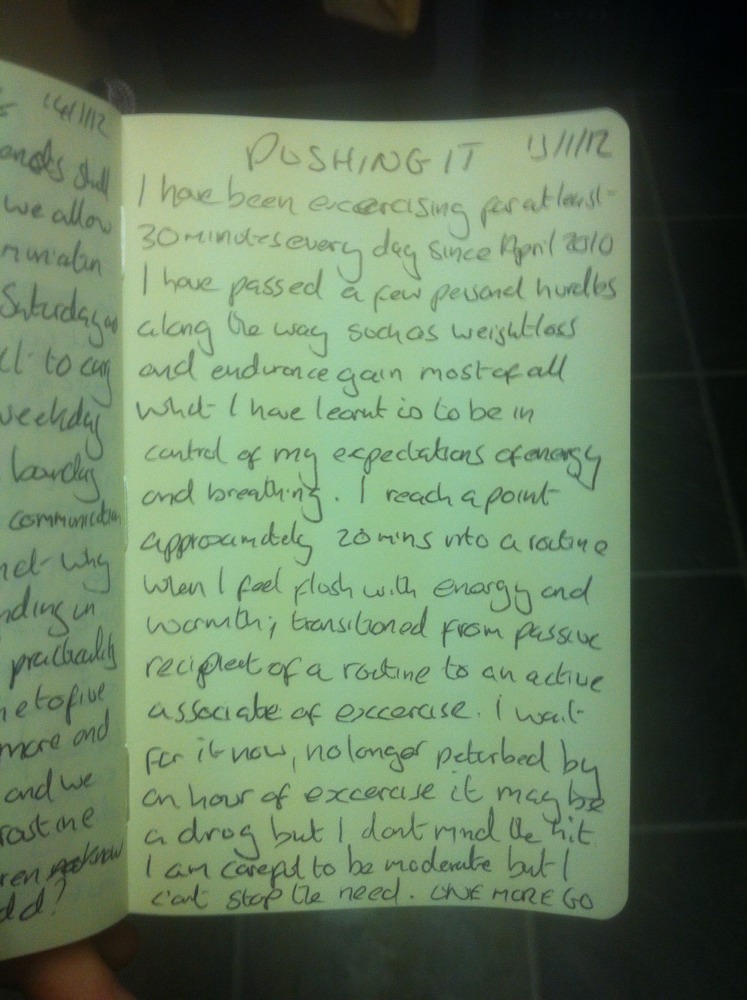 14/1/12
shall
we allow
Saturday
to
weekday
communication
why
in
practicality
to five
more and
and we
routine
know
PUSHING IT 13/1/12
I have been excercising for at least
30 minutes every day since April 2010
I have passed a few personal hurdles
along the way such as weightloss
and endurance gain most of all
what I have learnt is to be in
control of my expectations of energy
and breathing. I reach a point
approximately 20 mins into a routine
when I feel flush with energy and
warmth; transitioned from passive
recipient of a routine to an active
associate of excercise. I wait
for it now, no longer peturbed by
an hour of excercise it may be
a drug but I dont mind the hit
I am careful to be moderate but I
can't stop the need. ONE MORE GO